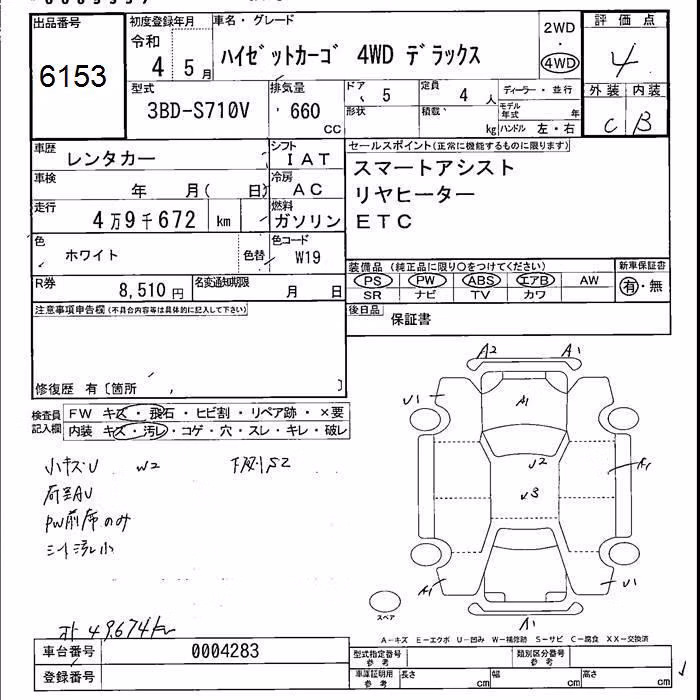 出品番号
6153
初度登録年月
令和
4 5月
車名・グレード
ハイゼットカーゴ 4WD デラックス
2WD
・
4WD
評価点
4
外装 内装
C B
型式
3BD-S710V
排気量
660
CC
ドア
5
形状
定員
4 人
積載
kg
ディーラー・並行
モデル年式 年
ハンドル 左・右
車歴
レンタカー
シフト
IAT
車検
年 月( 日)
冷房
AC
走行
4万9千672 km
燃料
ガソリン
色
ホワイト
色替
色コード
W19
セールスポイント(正常に機能するものに限ります)
スマートアシスト
リヤヒーター
ETC
R券
8,510 円
名変通知期限
月 日
装備品(純正品に限り○をつけてください)
PS PW ABS エアB AW
SR ナビ TV カワ
新車保証書
有・無
後日品
保証書
注意事項申告欄(不具合内容等は具体的に記入して下さい)
修復歴 有〔箇所 〕
検査員
記入欄
FW キズ・飛石・ヒビ割・リペア跡・×要
内装 キズ・汚レ・コゲ・穴・スレ・キレ・破レ
小キズU W2 下廻りS2
荷室AU
PW前席のみ
シート汚レ小
メーター49,674km
A2 A1
U1 A1
U2
U3
A1
A1 U1
A1
スペア
A-キズ E-エクボ U-凹み W-補修跡 S-サビ C-腐食 XX-交換済
車台番号
0004283
登録番号
型式指定番号
参考
類別区分番号
参考
車庫証明用
参考
長さ cm 幅 cm 高さ cm